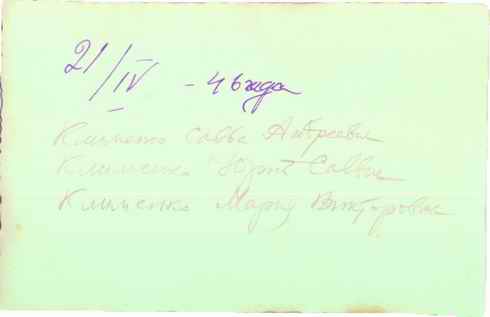 21/IV - 46 года
Клименко Савва Андреевич
Клименко Юрий Саввич
Клименко Мария Викторовна